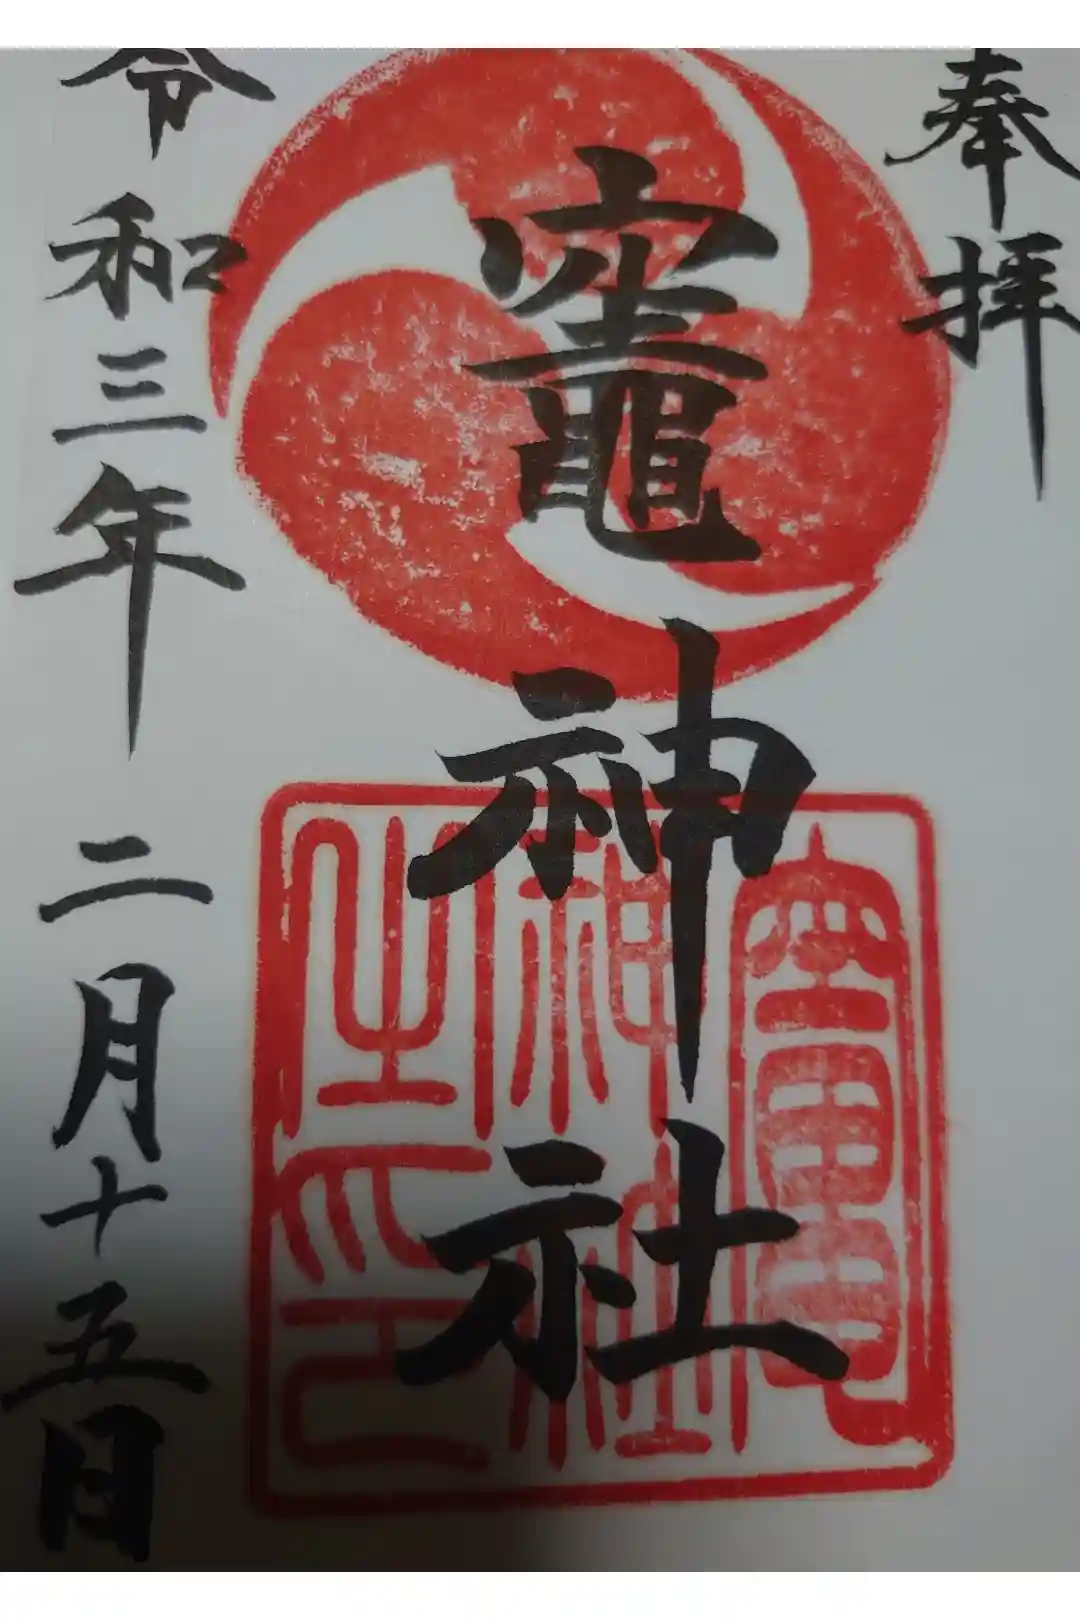 奉拝
竈神社
竈神社之印
令和三年 二月十五日